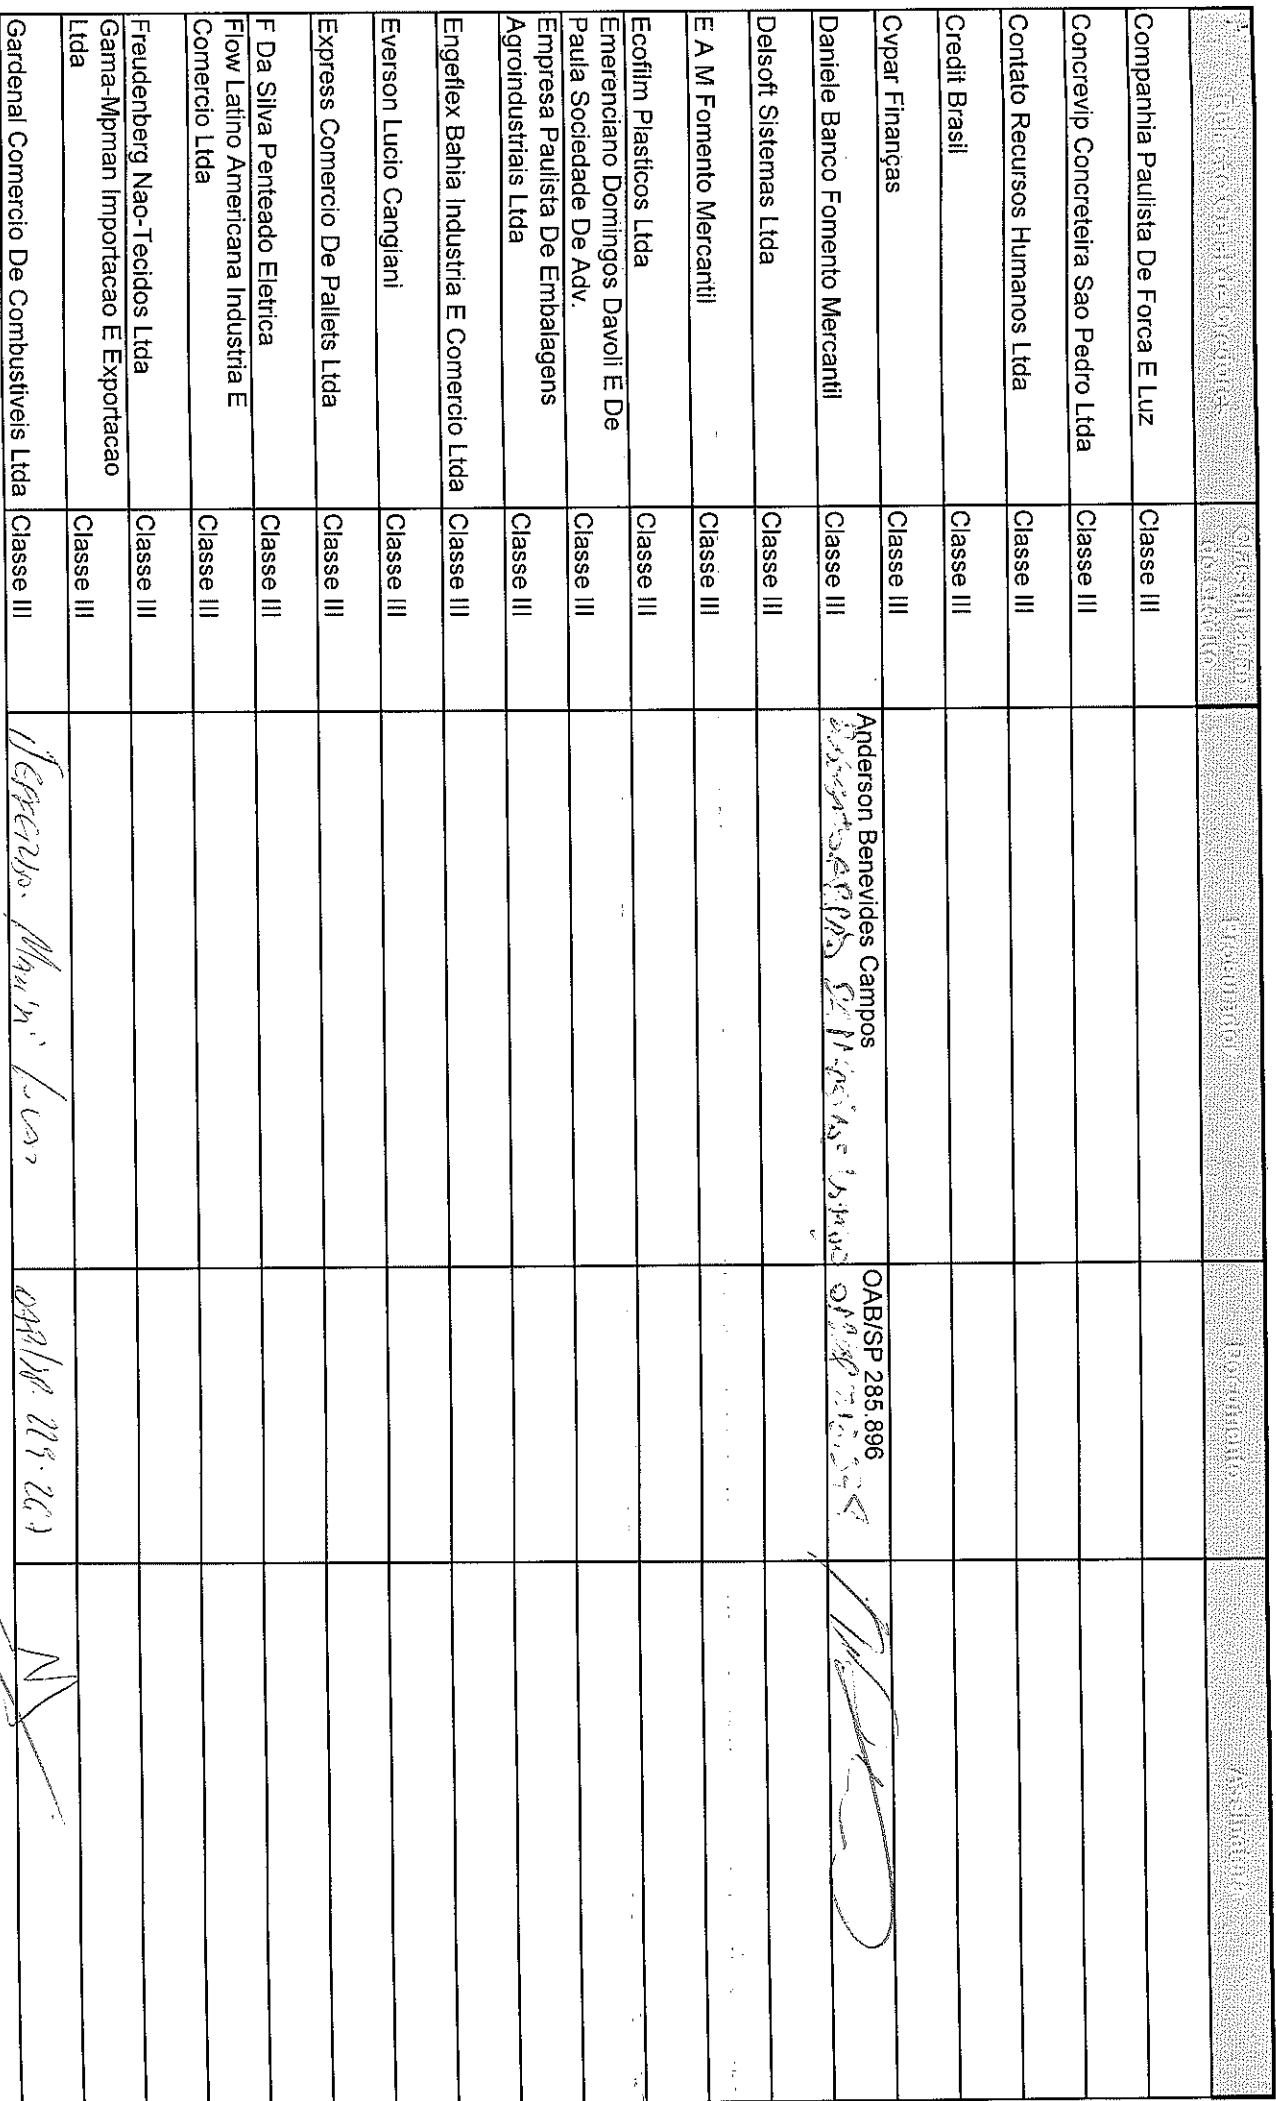 Relação Geral de Credores
Classificação
do Crédito
Procurador
Documento
Assinatura
Companhia Paulista De Forca E Luz
Classe III
Concrevip Concreteira Sao Pedro Ltda
Classe III
Contato Recursos Humanos Ltda
Classe III
Credit Brasil
Classe III
Cvpar Finanças
Classe III
Daniele Banco Fomento Mercantil
Classe III
Anderson Benevides Campos
OAB/SP 285.896
Delsoft Sistemas Ltda
Classe III
E A M Fomento Mercantil
Classe III
Ecofilm Plasticos Ltda
Classe III
Emerenciano Domingos Davoli E De
Paula Sociedade De Adv.
Classe III
Empresa Paulista De Embalagens
Agroindustriais Ltda
Classe III
Engeflex Bahia Industria E Comercio Ltda
Classe III
Everson Lucio Cangiani
Classe III
Express Comercio De Pallets Ltda
Classe III
F Da Silva Penteado Eletrica
Classe III
Flow Latino Americana Industria E
Comercio Ltda
Classe III
Freudenberg Nao-Tecidos Ltda
Classe III
Gama-Mpman Importacao E Exportacao
Ltda
Classe III
Gardenal Comercio De Combustiveis Ltda
Classe III